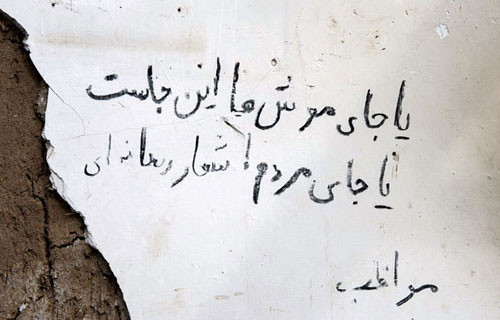 یا جای موش ها این جاست
یا جای مردم! شعار رسانه ای
مواظب